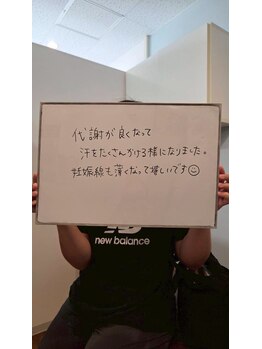 代謝が良くなって
汗をたくさんかける様になりました。
妊娠線も薄くなって嬉しいです☺
new balance